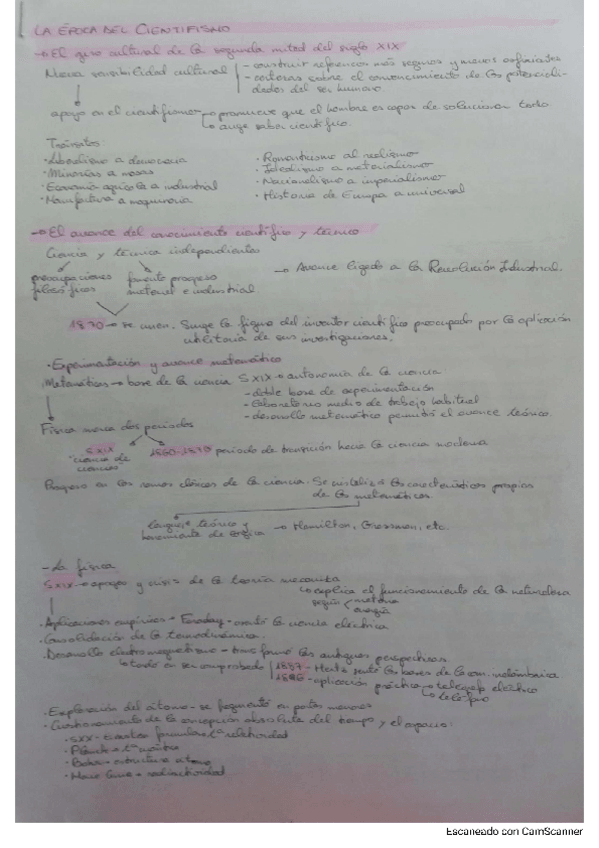 LA ÉPOCA DEL CIENTIFISMO
→ El giro cultural de la segunda mitad del siglo XIX
Nueva sensibilidad cultural - construir referencias más seguras y menos asfixiantes
- certezas sobre el convencimiento de las potenciali-
dades del ser humano
apoyo en el cientifismo → promueve que el hombre es capaz de solucionar todo
→ auge saber científico
Tránsitos:
· Liberalismo a democracia
· Minorías a masas
· Economía agrícola a industrial
· Manufactura a maquinaria
· Romanticismo al realismo
· Idealismo a materialismo
· Nacionalismo a imperialismo
· Historia de Europa a universal
→ El avance del conocimiento científico y técnico
Ciencia y técnica independientes
preocupaciones filosóficas
fomento progreso material e industrial
→ Avance ligado a la Revolución Industrial.
1870 → se unen. Surge la figura del inventor científico preocupado por la aplicación
utilitaria de sus investigaciones.
· Experimentación y avance matemático
Matemáticas → base de la ciencia SXIX → autonomía de la ciencia
- doble base de experimentación
- laboratorio medio de trabajo habitual
- desarrollo matemático permitió el avance teórico.
Física marca dos periodos
SXIX
"ciencia de ciencias"
1850-1870 periodo de transición hacia la ciencia moderna
Progreso en las ramas clásicas de la ciencia. Se cristalizó las características propias
de las matemáticas.
lenguaje teórico y
herramienta de lógica → Hamilton, Grassman, etc.
- La física
SXIX → apogeo y crisis de la teoría mecanicista
→ explica el funcionamiento de la naturaleza
según materia
energía
· Aplicaciones empíricas → Faraday → creó la ciencia eléctrica.
· Consolidación de la termodinámica.
· Desarrollo electromagnetismo - transformó las antiguas perspectivas.
→ tardó en ser comprobado 1887 - Hertz sentó las bases de la com. inalámbrica
1896 - aplicación práctica → telégrafo eléctrico
→ teléfono
· Exploración del átomo - se fragmentó en partes menores
· Cuestionamiento de la concepción absoluta del tiempo y el espacio:
· SXX - Einstein formula la tª relatividad
· Planck = tª cuántica
· Bohr = estructura átomo
· Marie Curie = radiactividad
Escaneado con CamScanner